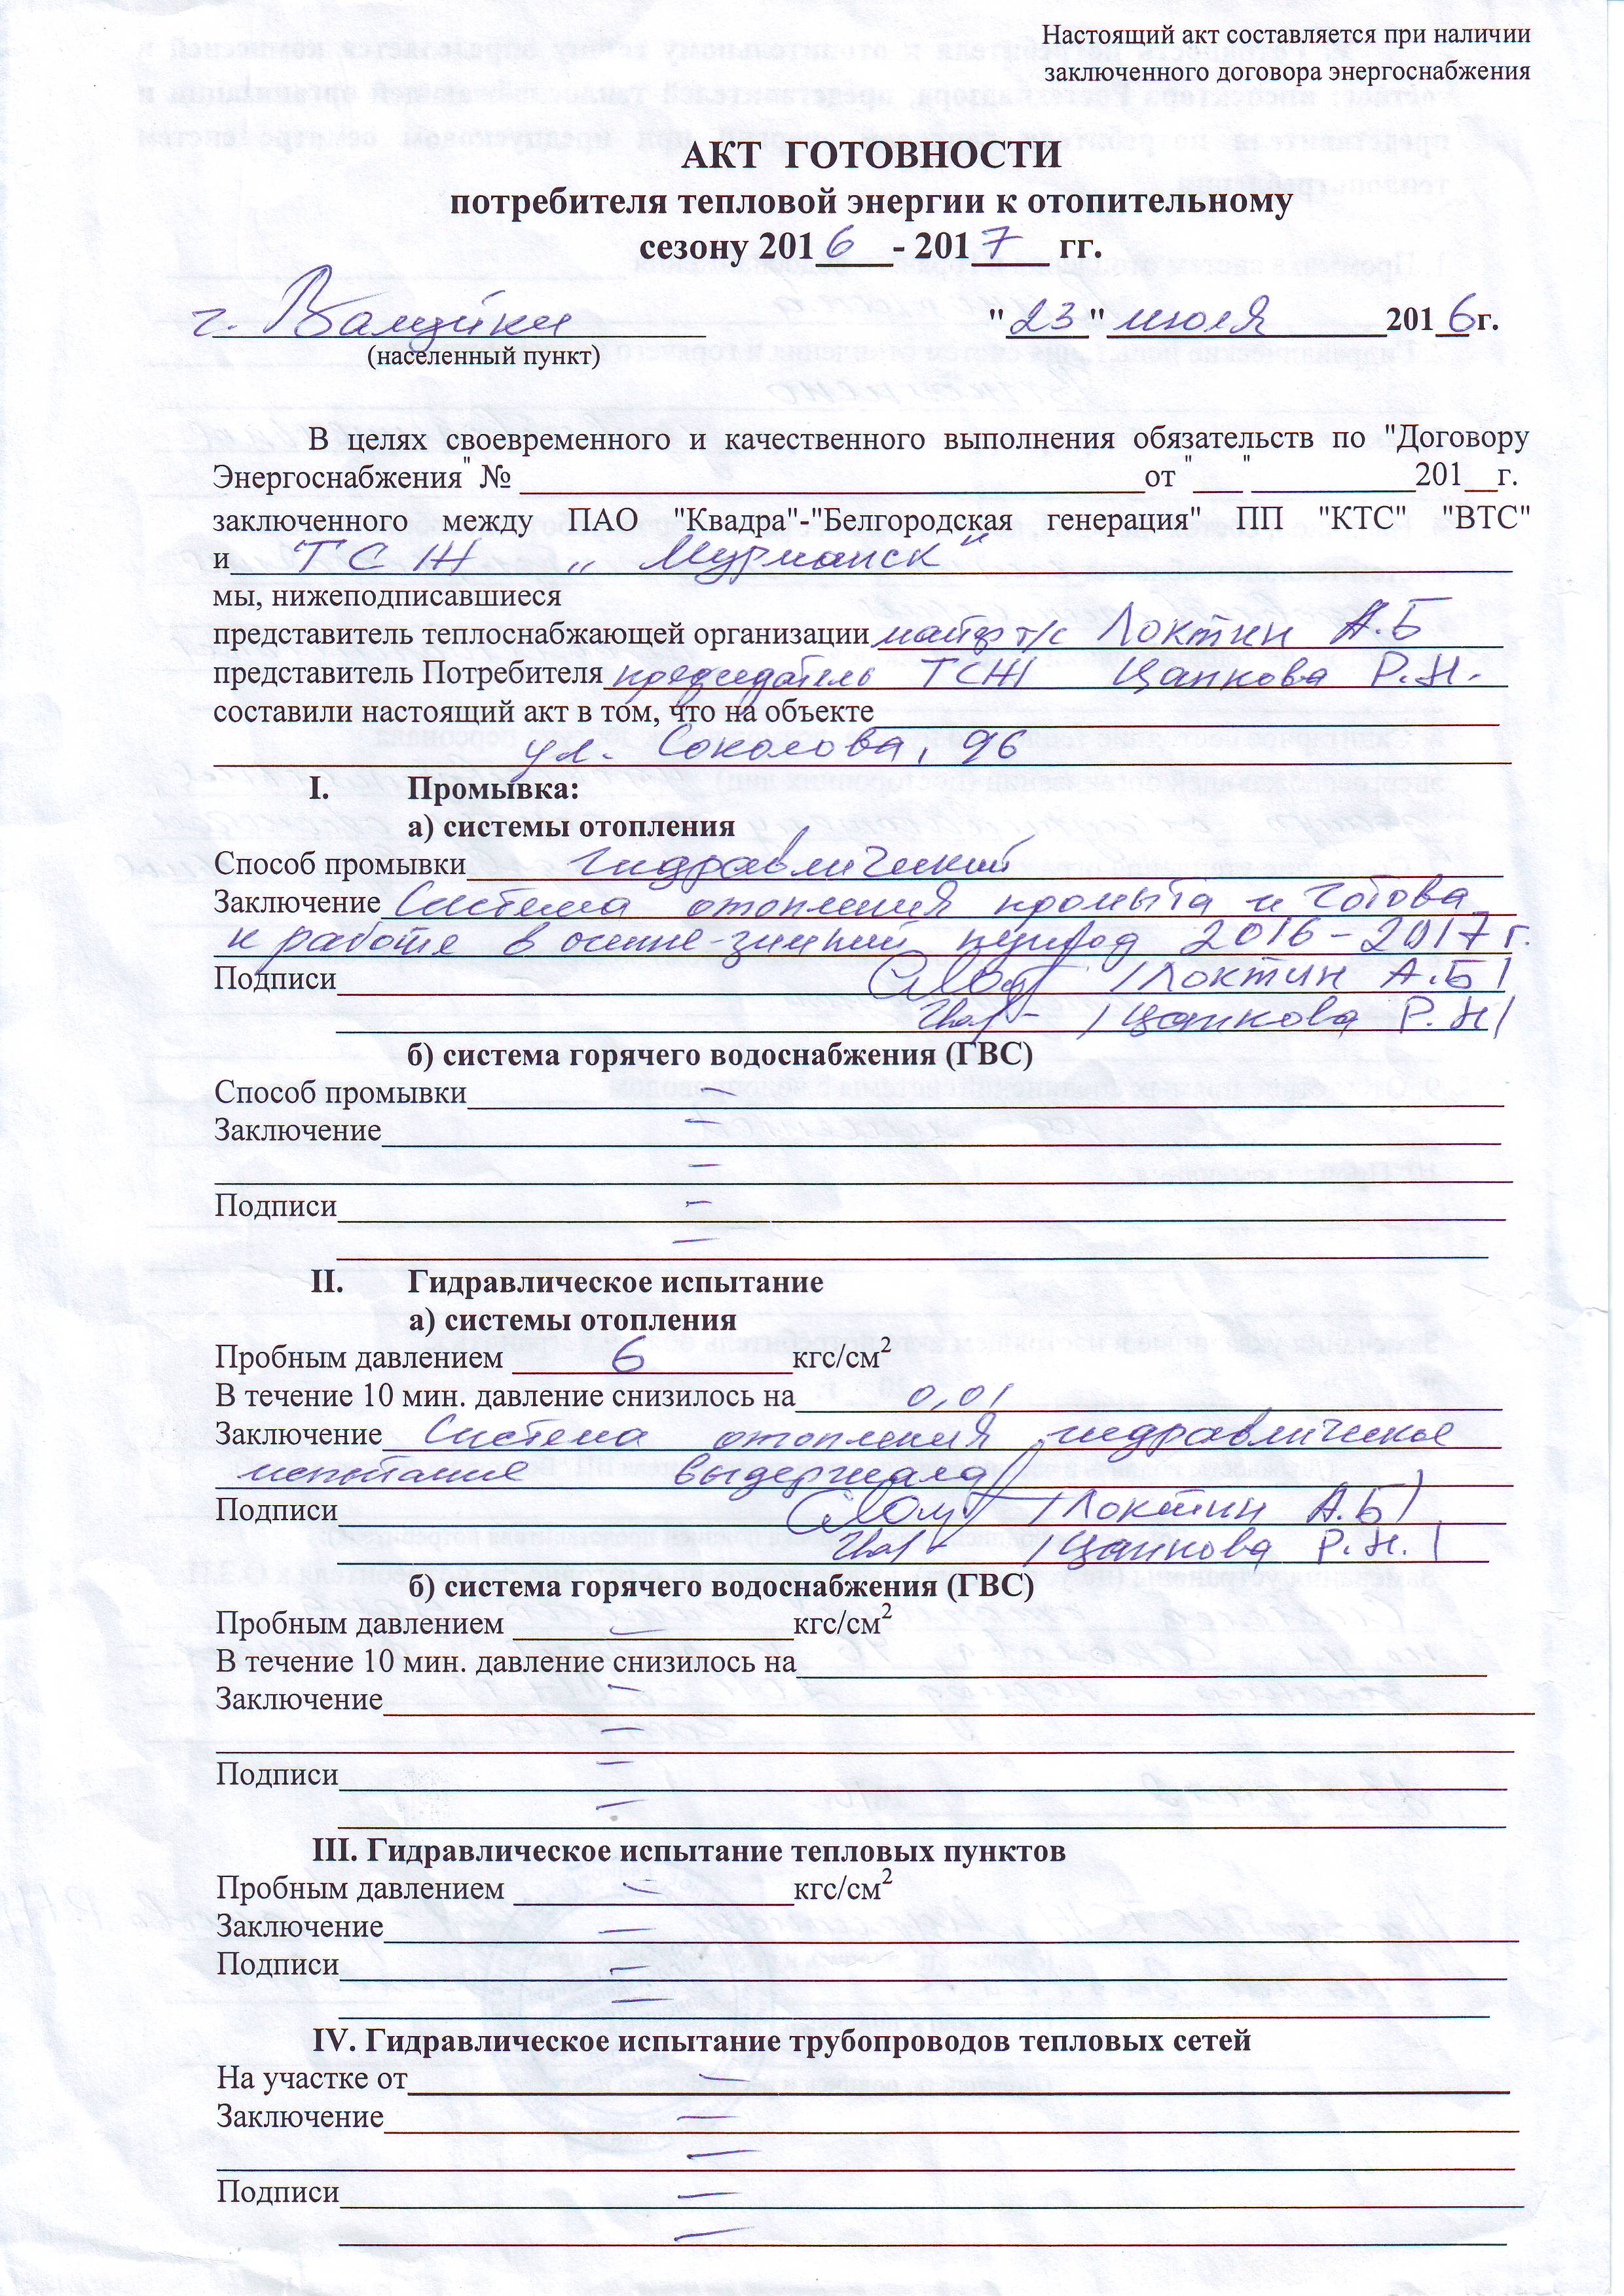 Настоящий акт составляется при наличии
заключенного договора энергоснабжения
АКТ ГОТОВНОСТИ
потребителя тепловой энергии к отопительному
сезону 2016 - 2017 гг.
г. Валуйки "23" июля 2016г.
(населенный пункт)
В целях своевременного и качественного выполнения обязательств по "Договору
Энергоснабжения" № ____ от "___"____201__г.
заключенного между ПАО "Квадра"-"Белгородская генерация" ПП "КТС" "ВТС"
и ТСЖ „Мурманск"
мы, нижеподписавшиеся
представитель теплоснабжающей организации т/с Локтин А.Б
представитель Потребителя председатель ТСЖ Цапкова Р.Н.
составили настоящий акт в том, что на объекте
ул. Соколова, 96
I. Промывка:
а) системы отопления
Способ промывки гидравлический
Заключение Система отопления промыта и готова
к работе в осенне-зимний период 2016-2017г.
Подписи /Локтин А.Б/
/Цапкова Р.Н/
б) система горячего водоснабжения (ГВС)
Способ промывки —
Заключение —
—
Подписи —
—
II. Гидравлическое испытание
а) системы отопления
Пробным давлением 6 кгс/см²
В течение 10 мин. давление снизилось на 0,01
Заключение Система отопления гидравлическое
испытание выдержала
Подписи /Локтин А.Б/
/Цапкова Р.Н./
б) система горячего водоснабжения (ГВС)
Пробным давлением — кгс/см²
В течение 10 мин. давление снизилось на
Заключение —
—
Подписи —
—
III. Гидравлическое испытание тепловых пунктов
Пробным давлением — кгс/см²
Заключение —
Подписи —
—
IV. Гидравлическое испытание трубопроводов тепловых сетей
На участке от —
Заключение —
—
Подписи —
—